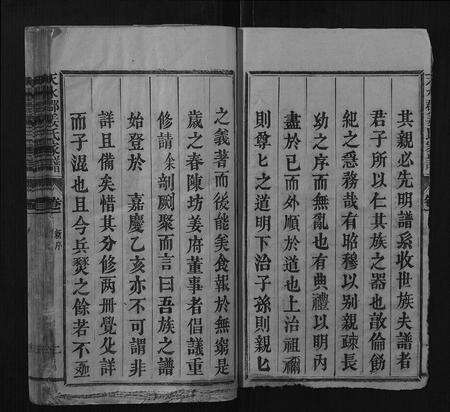 其親必先明譜系收世族夫譜者
君子所以仁其族之器也敦倫飭
紀之急務哉有昭穆以別親疎長
幼之序而無亂也有典禮以明內
盡於已而外順於道也上治祖禰
則尊匕之道明下治子孫則親匕
之義著而後能美食報於無窮是
歲之春陳坊姜府董事者倡議重
修請余剞劂聚而言曰吾族之譜
始登於 嘉慶乙亥亦不可謂非
詳且備矣惜其分修兩册覺父詳
而子混也且今兵燹之餘若不亟
天水郡姜氏家譜 卷 新序